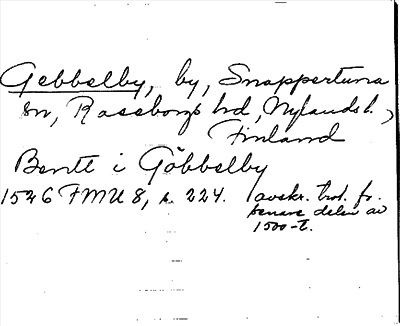 Gebbelby, by, Snappertuna
sn, Raseborgs hd, Nylands l.,
Finland
Bentt i Göbbelby
1526 FMU 8, s. 224. avskr. trol. fr.
senare delen av
1500-t.